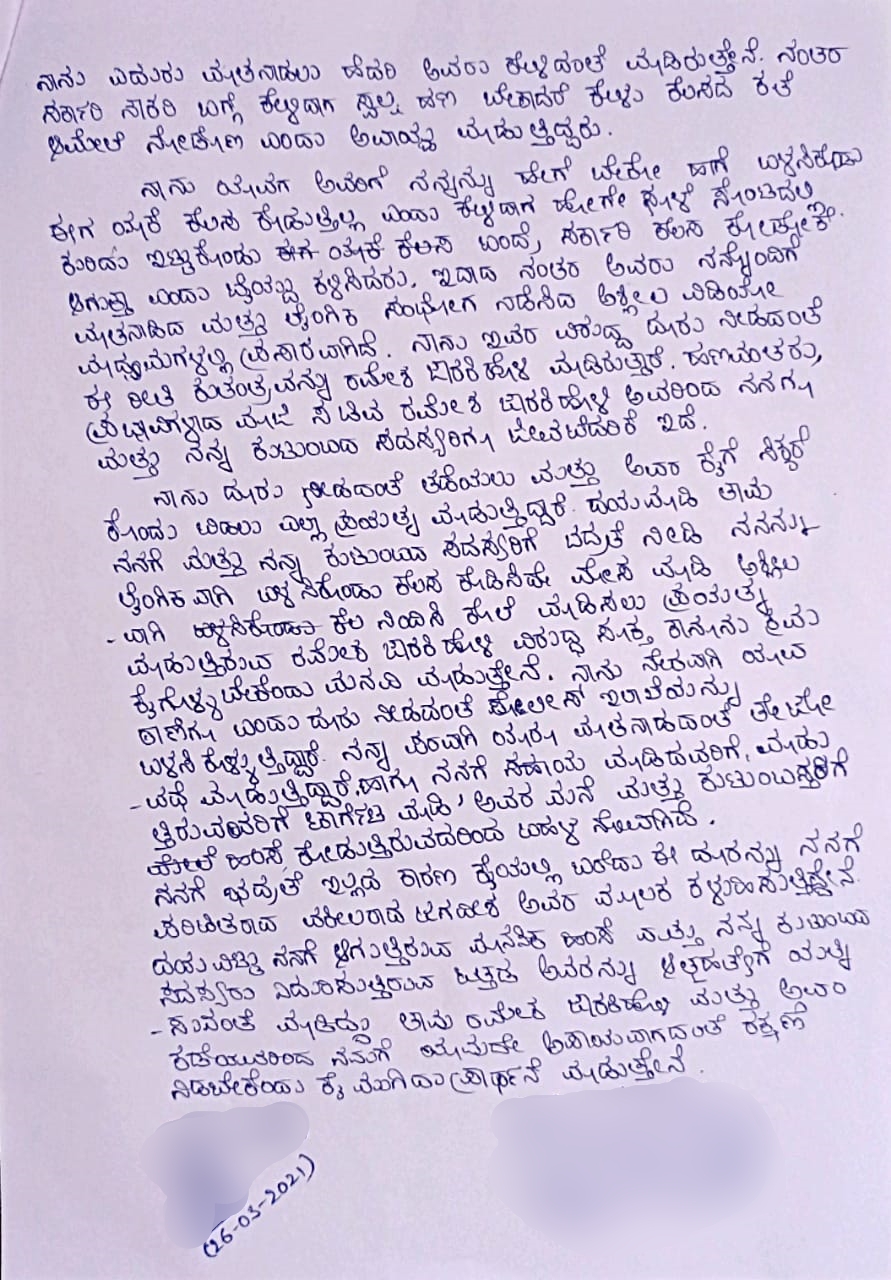 ನಾನು ಎದುರು ಮಾತನಾಡಲು ಹೆದರಿ ಅವರು ಕೇಳಿದಂತೆ ಮಾಡಿರುತ್ತೇನೆ. ನಂತರ
ಸರ್ಕಾರಿ ನೌಕರಿ ಬಗ್ಗೆ ಕೇಳಿದಾಗ ಸ್ವಲ್ಪ ಹಣ ಬೇಕಾದರೆ ಕೇಳು ಕೆಲಸದ ಕತೆ
ಆಮೇಲೆ ನೋಡೋಣ ಎಂದು ಅವಾಯ್ಡ ಮಾಡುತ್ತಿದ್ದರು.
ನಾನು ಯಾವಾಗ ಅವರಿಗೆ ನನ್ನನ್ನು ಹೇಗೆ ಬೇಕೋ ಹಾಗೆ ಬಳಸಿಕೊಂಡು
ಈಗ ಯಾಕೆ ಕೆಲಸ ಕೊಡುತ್ತಿಲ್ಲ ಎಂದು ಕೇಳಿದಾಗ ಹೋಗೇ ಸೂಳೆ ಸೊಂಟದಲಿ
ಕುರಿದು ಇಟ್ಟುಕೊಂಡು ಈಗ ಯಾಕೆ ಕೆಲಸ ಎಂದೆ, ಸರ್ಕಾರಿ ಕೆಲಸ ಕೊಡ್ಸೋಕೆ.
ಆಗುತ್ತಾ ಎಂದು ಬೈಯ್ದು ಕಳಿಸಿದರು. ಇದಾದ ನಂತರ ಅವರು ನನ್ನೊಂದಿಗೆ
ಮಾತನಾಡಿದ ಮತ್ತು ಲೈಂಗಿಕ ಸಂಭೋಗ ನಡೆಸಿದ ಅಶ್ಲೀಲ ವಿಡಿಯೋ
ಮಾಧ್ಯಮಗಳಲ್ಲಿ ಪ್ರಸಾರವಾಗಿದೆ. ನಾನು ಇವರ ವಿರುದ್ಧ ದೂರು ನೀಡದಂತೆ
ಈ ರೀತಿ ಕುತಂತ್ರವನ್ನು ರಮೇಶ ಜಾರಕಿಹೊಳಿ ಮಾಡಿರುತ್ತಾರೆ. ಹಣವಂತರು,
ಪ್ರಭಾವಿಗಳಾದ ಮಾಜಿ ಸಚಿವ ರಮೇಶ ಜಾರಕಿಹೊಳಿ ಅವರಿಂದ ನನಗೂ
ಮತ್ತು ನನ್ನ ಕುಟುಂಬದ ಸದಸ್ಯರಿಗೂ ಜೀವಬೆದರಿಕೆ ಇದೆ.
ನಾನು ದೂರು ನೀಡದಂತೆ ತಡೆಯಲು ಮತ್ತು ಅವರ ಕೈಗೆ ಸಿಕ್ಕರೆ
ಕೊಂದು ಬಿಡಲು ಎಲ್ಲಾ ಪ್ರಯತ್ನ ಮಾಡುತ್ತಿದ್ದಾರೆ. ದಯಮಾಡಿ ತಾವು
ನನಗೆ ಮತ್ತು ನನ್ನ ಕುಟುಂಬದ ಸದಸ್ಯರಿಗೆ ಭದ್ರತೆ ನೀಡಿ ನನನ್ನು
ಲೈಂಗಿಕವಾಗಿ ಬಳಸಿಕೊಂಡು ಕೆಲಸ ಕೊಡಿಸದೇ ಮೋಸ ಮಾಡಿ ಅಶ್ಲೀಲ
- ವಾಗಿ ಬಳಸಿಕೊಂಡು ಕೆಲ ನಿಂದಿಸಿ ಕೊಲೆ ಮಾಡಿಸಲು ಪ್ರಯತ್ನ
ಮಾಡುತ್ತಿರುವ ರಮೇಶ ಜಾರಕಿಹೊಳಿ ವಿರುದ್ಧ ಸೂಕ್ತ ಕಾನೂನು ಕ್ರಮ
ಕೈಗೊಳ್ಳಬೇಕೆಂದು ಮನವಿ ಮಾಡುತ್ತೇನೆ. ನಾನು ನೇರವಾಗಿ ಯಾವ
ಠಾಣೆಗೂ ಬಂದು ದೂರು ನೀಡದಂತೆ ಪೋಲೀಸ್ ಇಲಾಖೆಯನ್ನು
ಬಳಸಿ ಕೊಳ್ಳುತ್ತಿದ್ದಾರೆ. ನನ್ನ ಪರವಾಗಿ ಯಾರೂ ಮಾತನಾಡದಂತೆ ತೇಜೋ
- ವಧೆ ಮಾಡುತ್ತಿದ್ದಾರೆ, ಹಾಗೂ ನನಗೆ ಸಹಾಯ ಮಾಡಿದವರಿಗೆ, ಮಾಡು
ತ್ತಿರುವವರಿಗೆ ಟಾರ್ಗೆಟ ಮಾಡಿ, ಅವರ ಮನೆ ಮತ್ತು ಕುಟುಂಬಸ್ತರಿಗೆ
ಮೇಲೆ ಹಿಂಸೆ, ಕೊಡುತ್ತಿರುವದರಿಂದ ಬಹಳ ನೋವಾಗಿದೆ.
ನನಗೆ ಭದ್ರತೆ ಇಲ್ಲದ ಕಾರಣ ಕೈಯಲ್ಲಿ ಬರೆದು ಈ ದೂರನ್ನು ನನಗೆ
ಪರಿಚಿತರಾದ ವಕೀಲರಾದ ಜಗದೀಶ ಅವರ ಮೂಲಕ ಕಳುಹಿಸುತ್ತಿದ್ದೇನೆ.
ದಯವಿಟ್ಟು ನನಗೆ ಆಗುತ್ತಿರುವ ಮಾನಸಿಕ ಹಿಂಸೆ ಮತ್ತು ನನ್ನ ಕುಟುಂಬದ
ಸದಸ್ಯರು ಎದುರಿಸುತ್ತಿರುವ ಒತ್ತಡ ಅವರನ್ನು ಆತ್ಮಹತ್ಯೆಗೆ ಯತ್ನಿ
- ಸುವಂತೆ ಮಾಡಿದ್ದು ತಾವು ರಮೇಶ ಜಾರಕಿಹೊಳಿ ಮತ್ತು ಅವರ
ಕಡೆಯವರಿಂದ ನಮಗೆ ಯಾವುದೇ ಅಪಾಯವಾಗದಂತೆ ರಕ್ಷಣೆ
ನಿಡಬೇಕೆಂದು ಕೈ ಮುಗಿದು ಪ್ರಾರ್ಥನೆ ಮಾಡುತ್ತೇನೆ.
(26-03-2021)